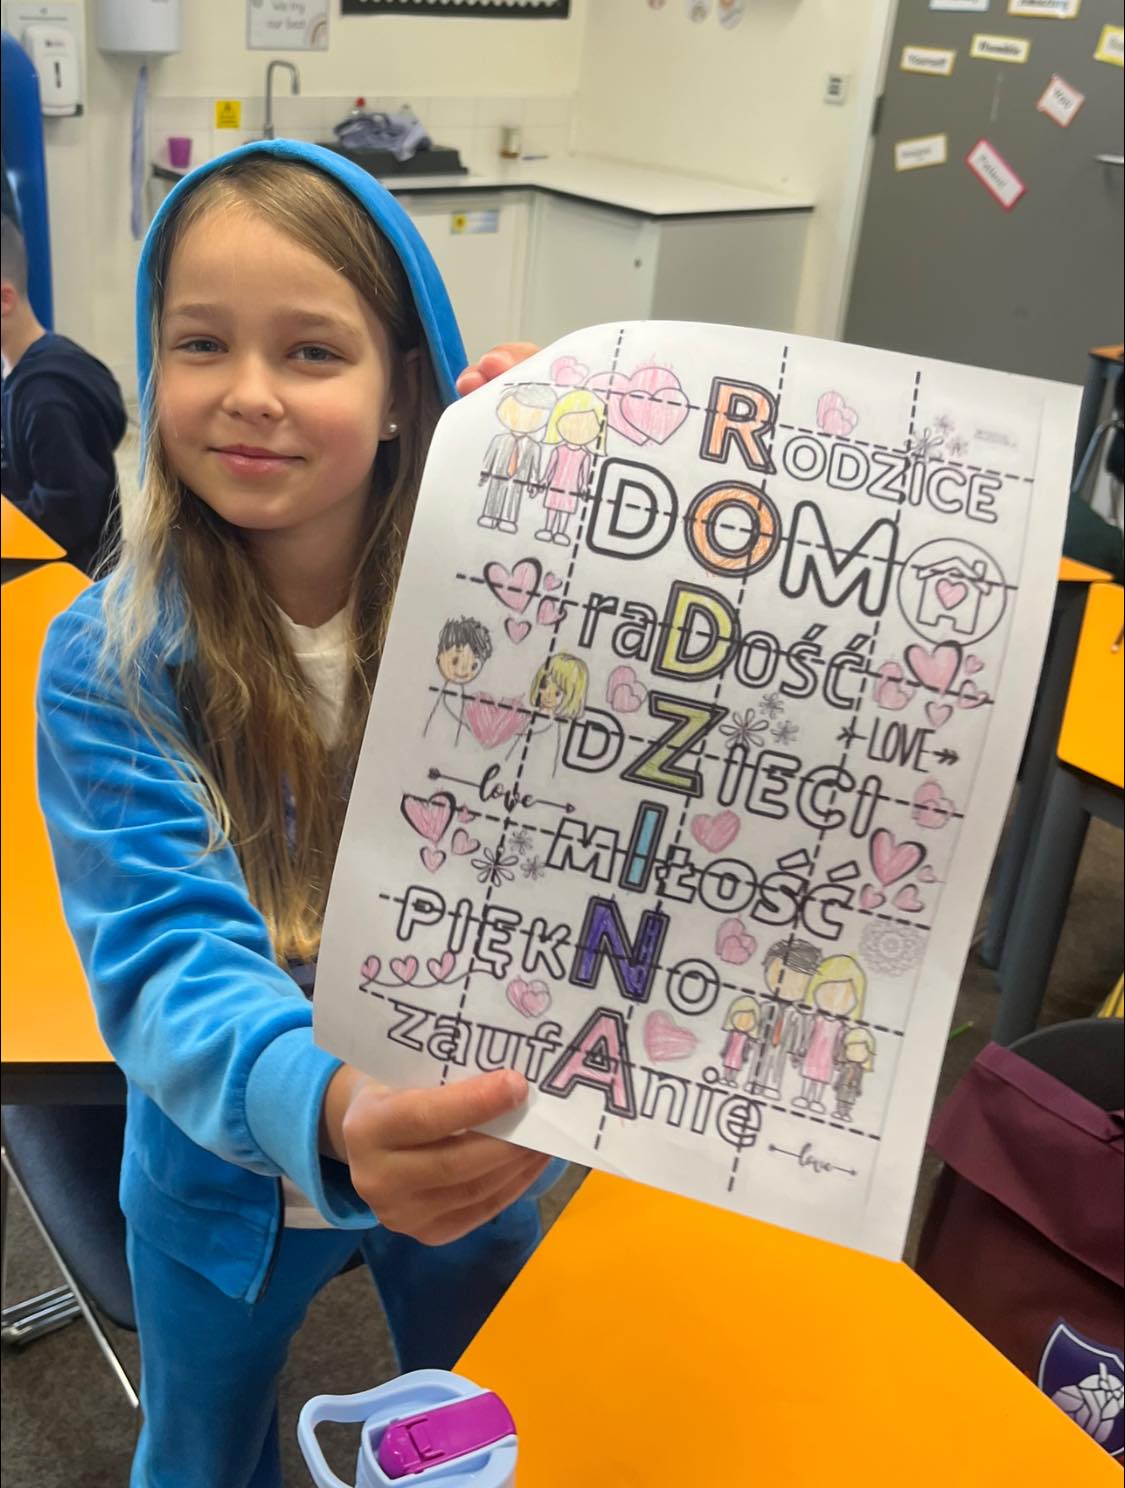 We try
our best
Yourself
Humble
You
Patient
RODZICE
DOM
raDość
DZIECI
LOVE
love
MIŁOŚĆ
PIĘKNO
zaufAnie
love